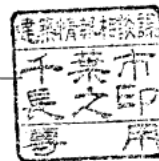 建築情報相談課
千葉市
長之印
専用